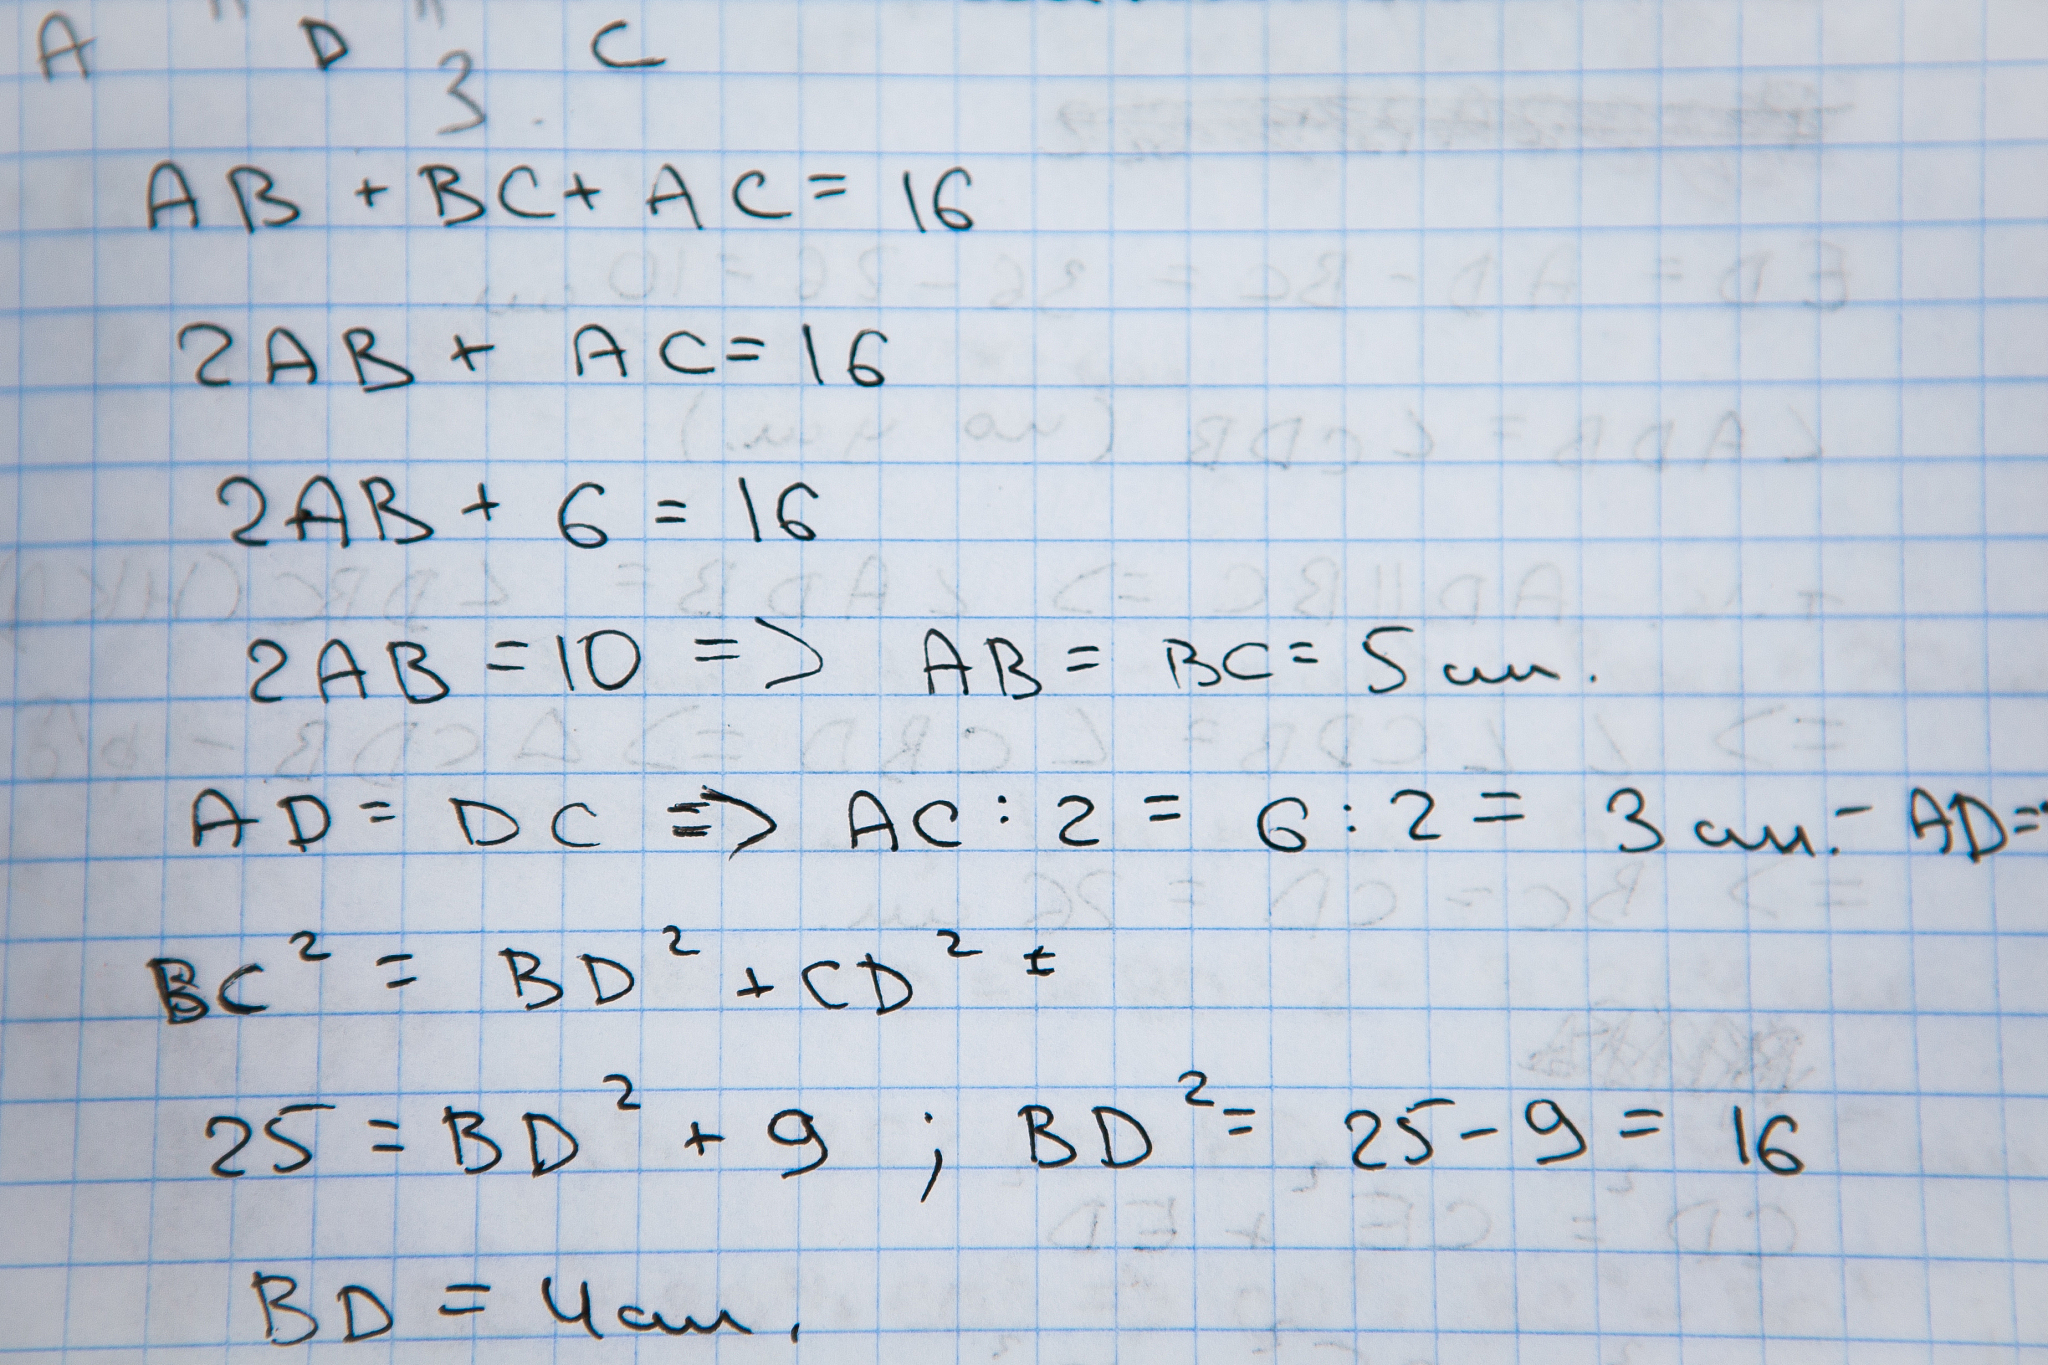 A D C
3.
AB + BC + AC = 16
2AB + AC = 16
2AB + 6 = 16
2AB = 10 => AB = BC = 5 см.
AD = DC => AC : 2 = 6 : 2 = 3 см. - AD =
BC² = BD² + CD² =
25 = BD² + 9 ; BD² = 25 - 9 = 16
BD = 4 см.